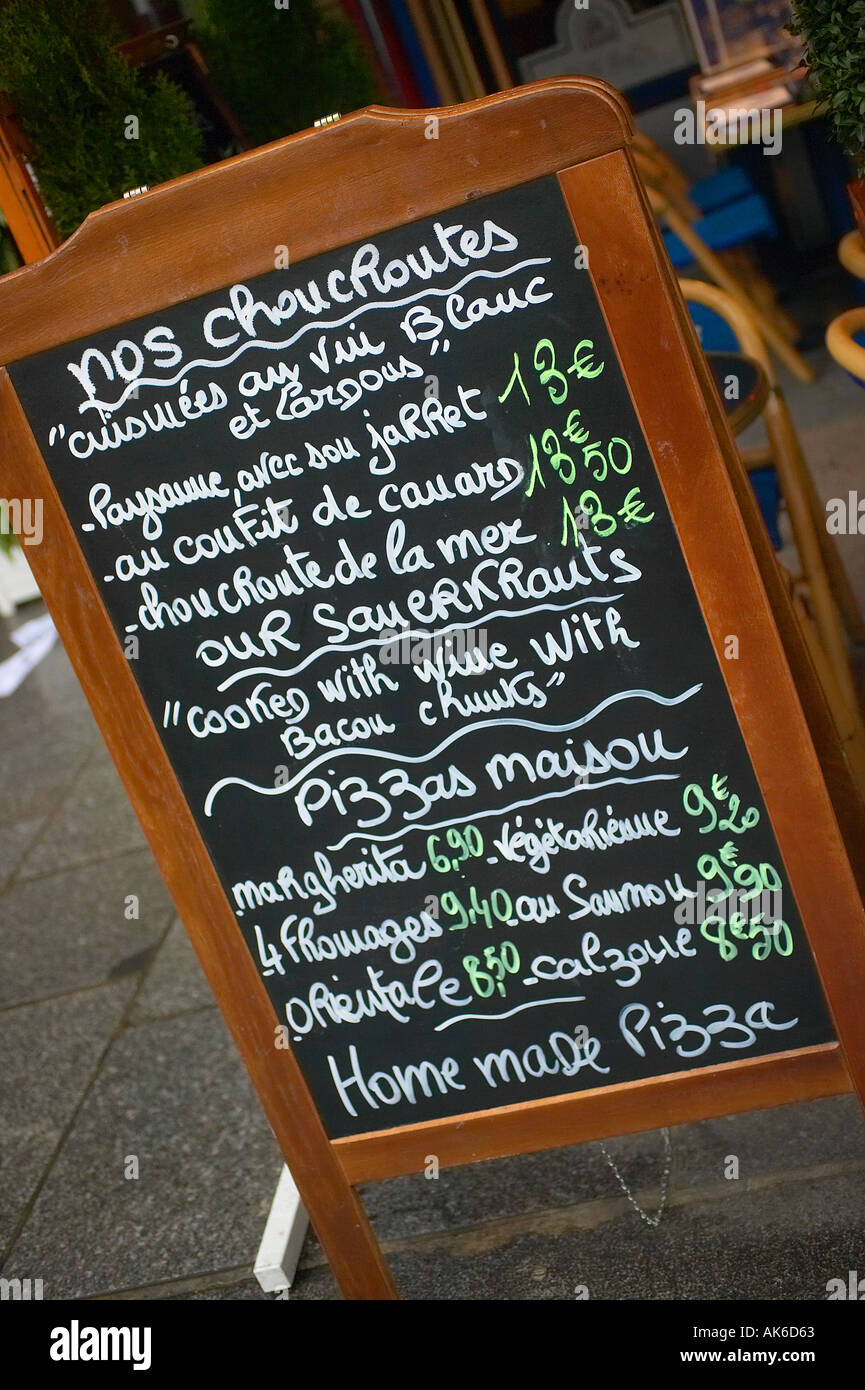 nos choucroutes
"cuisinées au vin Blanc
et Lardons"
-Paysanne, avec son jarret 13€
-au confit de canard 13€50
-choucroute de la mer 13€
OUR SauerKRauts
"cooked with wine with
Bacon chunks"
Pizzas maison
margherita 6,90 -végétarienne 9€20
4 fromages 9,40 -au Saumon 9€90
orientale 8,50 -calzone 8€50
Home made Pizza
alamy
a
Image ID: AK6D63
www.alamy.com